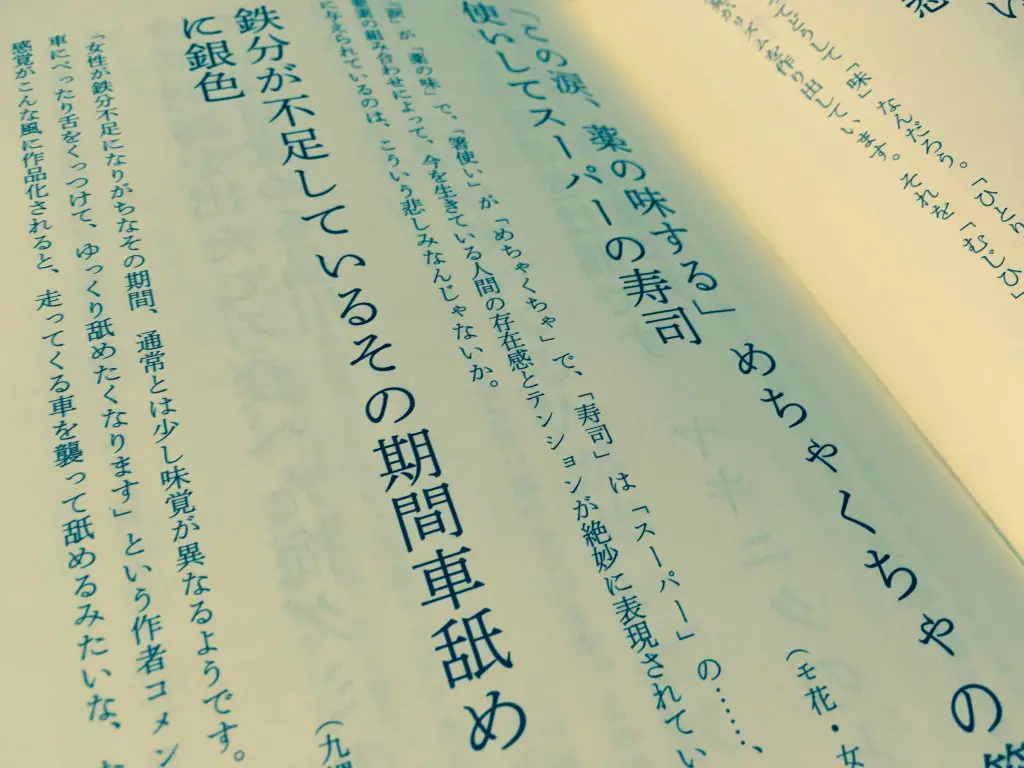 てどうして「味」なんだろう。「ひとり
リズムを作り出しています。それを「むじひ」
「この涙、薬の味する」めちゃくちゃの箸
使いしてスーパーの寿司
（モ花・女
「涙」が「薬の味」で、「箸使い」が「めちゃくちゃ」で、「寿司」は「スーパー」の……、
の組み合わせによって、今を生きている人間の存在感とテンションが絶妙に表現されてい
に与えられているのは、こういう悲しみなんじゃないか。
鉄分が不足しているその期間車舐め
に銀色
（九
「女性が鉄分不足になりがちなその期間、通常とは少し味覚が異なるようです。
車にべったり舌をくっつけて、ゆっくり舐めたくなります」という作者コメン
感覚がこんな風に作品化されると、走ってくる車を襲って舐めるみたいな、